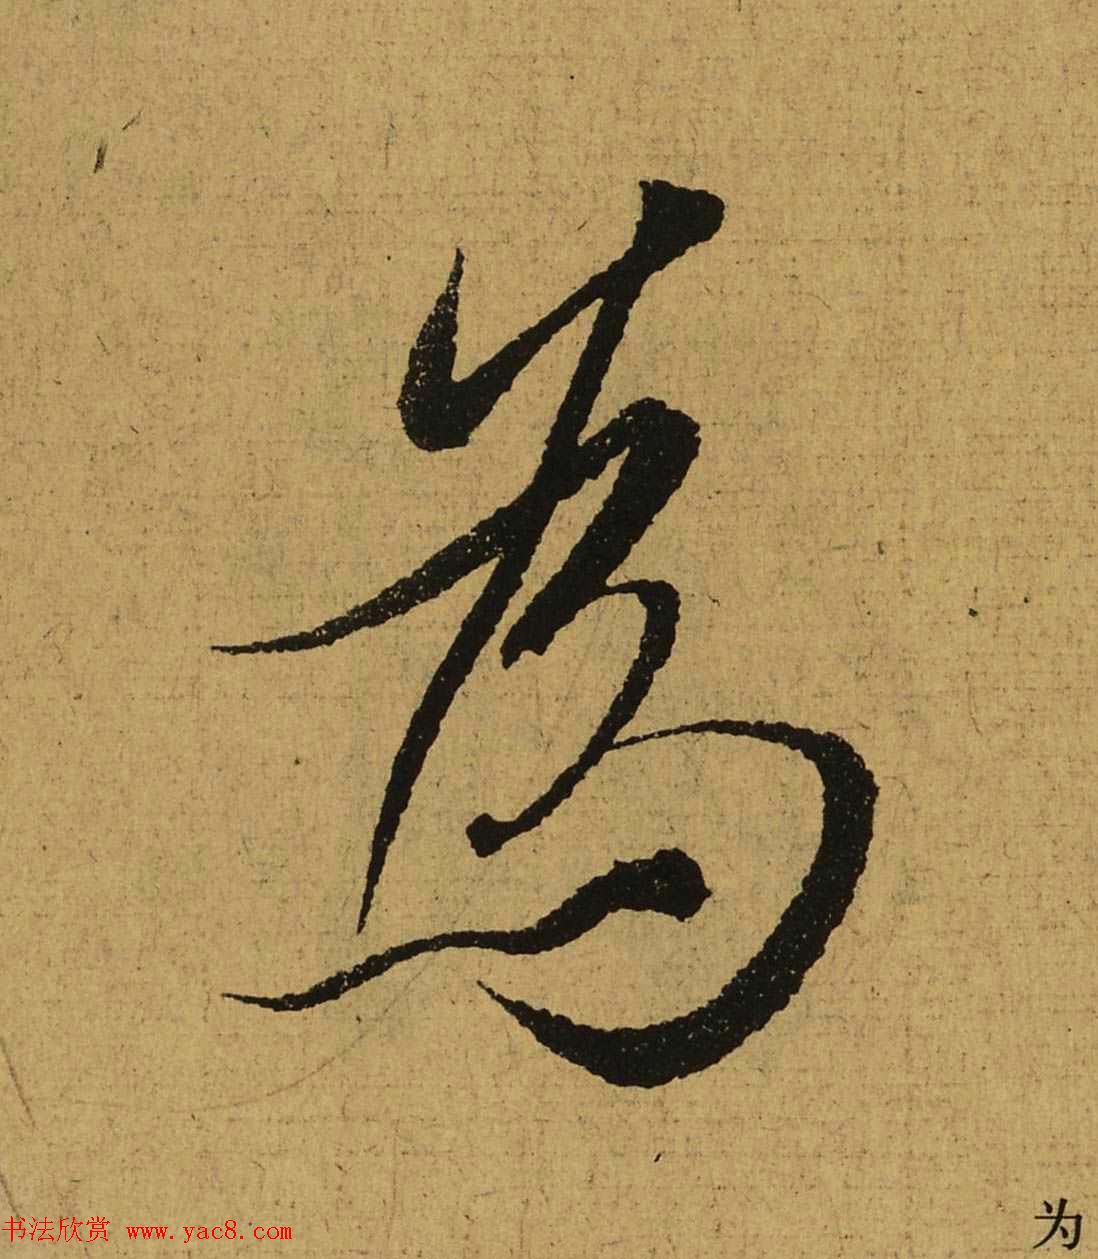 為
为
书法欣赏 www.yac8.com